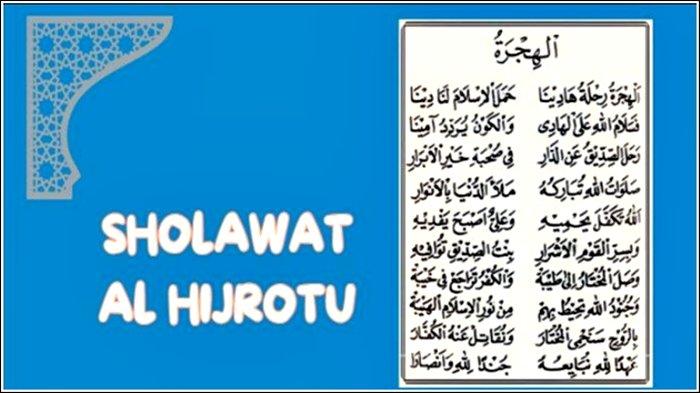 SHOLAWAT
AL HIJROTU
اَلْهِجْرَةُ
اَلْهِجْرَةُ رِحْلَةُ هَادِيْنَا حَمَلَ الْاِسْلَامَ لَنَا دِيْنَا
فَسَلَامُ اللهِ عَلَى الْهَادِى وَالْكَوْنُ يُرَدِّدُ آمِيْنَا
رَحَلَ الصِّدِّيْقُ عَنِ الدَّارِ فِى صُحْبَةِ خَيْرِ الْاَبْرَارِ
صَلَوَاتُ اللهِ تُبَارِكُهُ مَلَأَ الدُّنْيَا بِالْاَنْوَارِ
اَللهُ تَكَفَّلَ يَحْمِيْهِ وَعَلِيٌّ اَصْبَحَ يَفْدِيْهِ
وَبِسِرِّ الْقَوْمِ الْاَشْرَارِ بِنْتُ الصِّدِّيْقِ تُوَافِيْهِ
وَصَلَ الْمُخْتَارُ اِلَى طَيْبَةْ وَالْكُفْرُ تَرَاجَعَ فِى خَيْبَةْ
وَجُنُوْدُ اللهِ تُحِيْطُ بِهِمْ مِنْ نُوْرِ الْاِسْلَامِ الْهَيْبَةْ
بِالرُّوْحِ سَنَحْمِى الْمُخْتَارَ وَنُقَاتِلُ عَنْهُ الْكُفَّارَ
عَهْدًا لِلهِ نُبَايِعُهُ جُنْدًا لِلهِ وَاَنْصَارًا